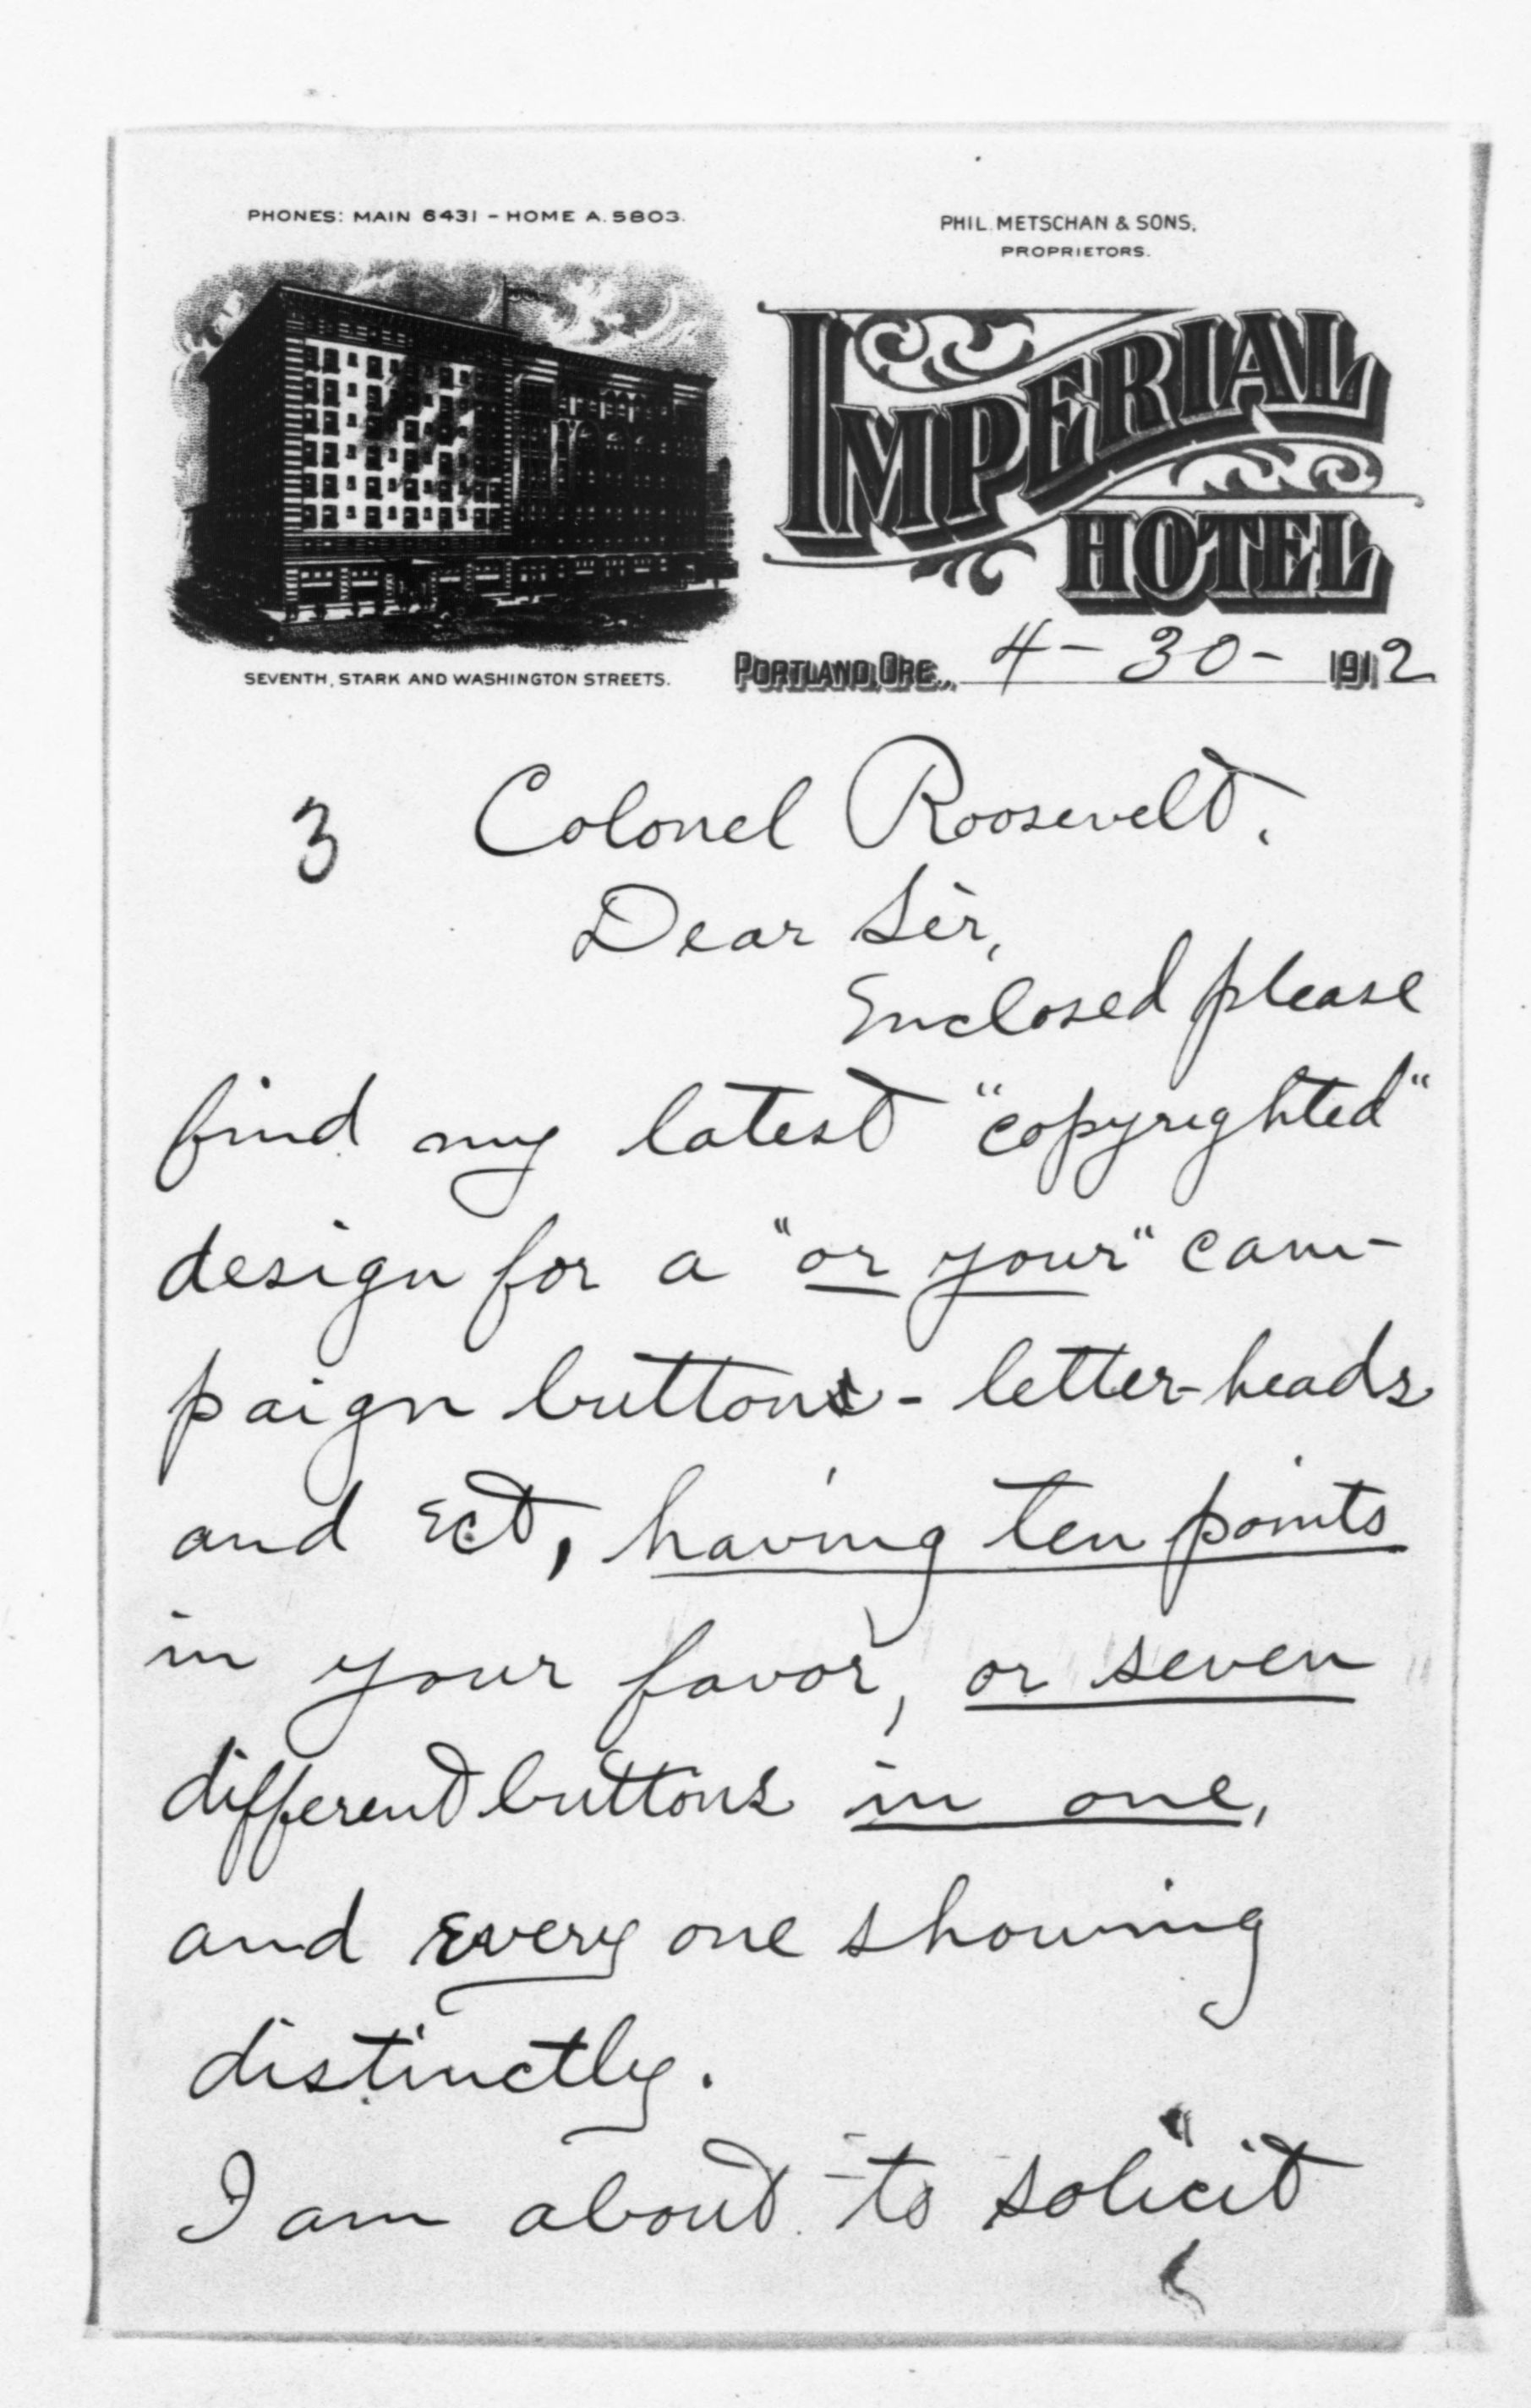 PHONES: MAIN 6431 - HOME A. 5803.
PHIL. METSCHAN & SONS,
PROPRIETORS.
IMPERIAL
HOTEL
SEVENTH, STARK AND WASHINGTON STREETS.
PORTLAND, ORE., 4-30-1912
3 Colonel Roosevelt.
Dear Sir,
Enclosed please
find my latest "copyrighted"
design for a "or your" cam-
paign buttons - letter-heads
and Ect, having ten points
in your favor, or seven
different buttons in one,
and every one showing
distinctly.
I am about to solicit